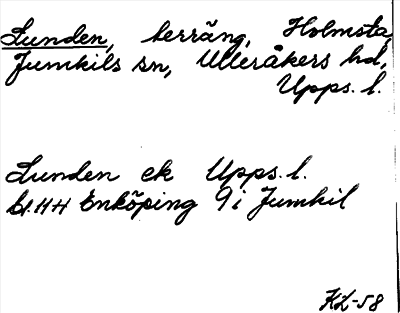 Lunden, terräng, Holmsta,
Jumkils sn, Ulleråkers hd,
Upps. l.
Lunden ek Upps. l.
bl. 44 Enköping 9 i Jumkil
KL-58